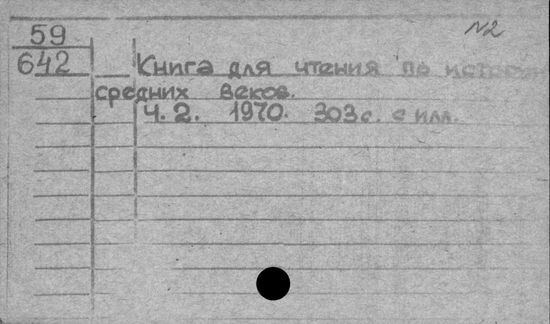 N2
59
642
Книга для чтения по истории
средних веков.
Ч. 2. 1970. 303с. с илл.